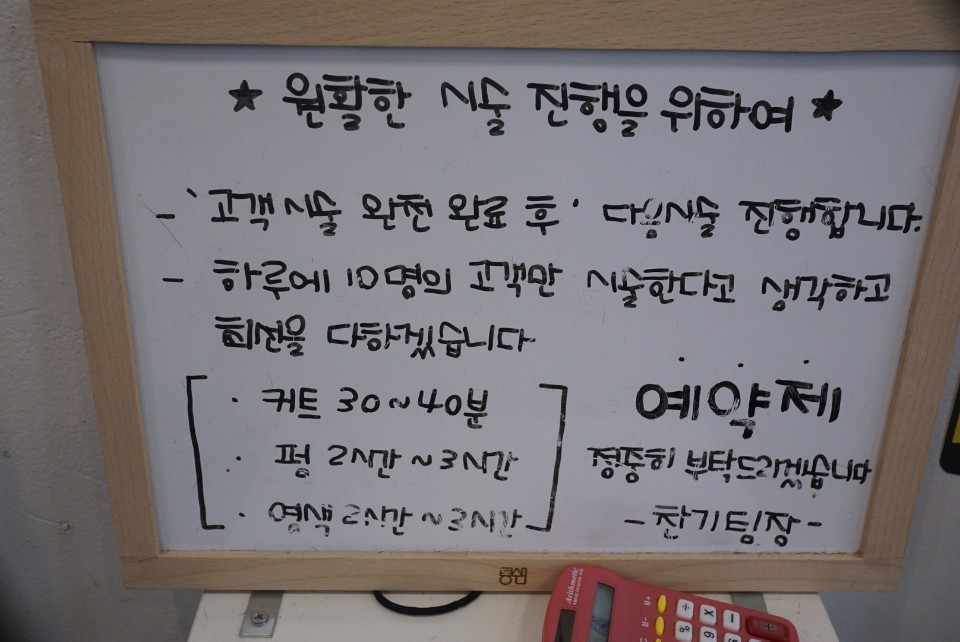 ★ 원활한 시술 진행을 위하여 ★
- '고객 시술 완전 완료 후' 다음시술 진행합니다.
- 하루에 10명의 고객만 시술한다고 생각하고
최선을 다하겠습니다
· 커트 30~40분
· 펌 2시간 ~ 3시간
· 염색 2시간 ~ 3시간
예약제
정중히 부탁드리겠습니다
- 찬기팀장 -
통심
Arithmetic